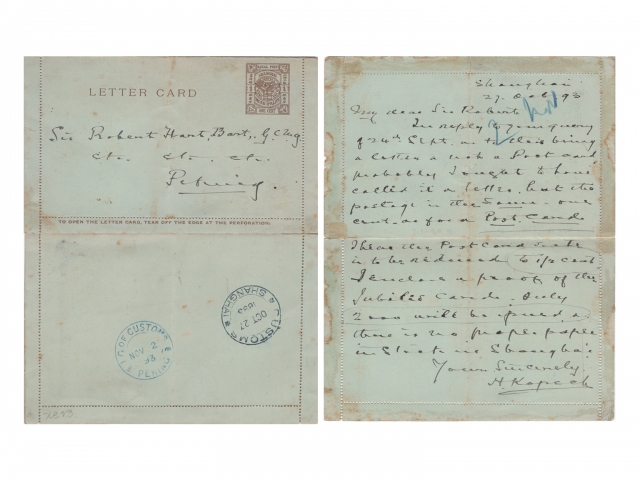 LETTER CARD
LOCAL POST
ONE CENT
Sir Robert Hart, Bart, G.C.M.G
etc. etc. etc.
Peking.
TO OPEN THE LETTER CARD, TEAR OFF THE EDGE AT THE PERFORATION.
CUSTOMS
OCT 27
1893
SHANGHAI
I.G. OF CUSTOMS
NOV 2
93
PEKING
Shanghai
27. Oct 93
My dear Sir Robert
In reply to your query
of 24th Sept. as to this being
a letter & not a Post card
probably I ought to have
called it a letter, but the
postage is the same - one
cent. as for a Post Card.
I hear the Post Card rate
is to be reduced to 1/2 cent
I enclose a proof of the
Jubilee Cards. Only
2000 will be issued as
there is no proper paper
in Stock in Shanghai
Yours Sincerely
H. Kopsch